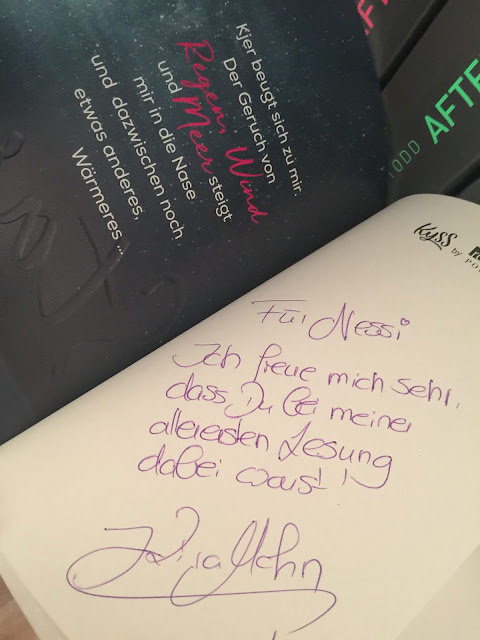 Kjer beugt sich zu mir.
Der Geruch von
Regen, Wind
und Meer steigt
mir in die Nase.
und dazwischen noch
etwas anderes.
Wärmeres ...
AFTE
ODD
Kyss
by
Für Nessi
Ich freue mich sehr,
dass Du bei meiner
allerersten Lesung
dabei warst!